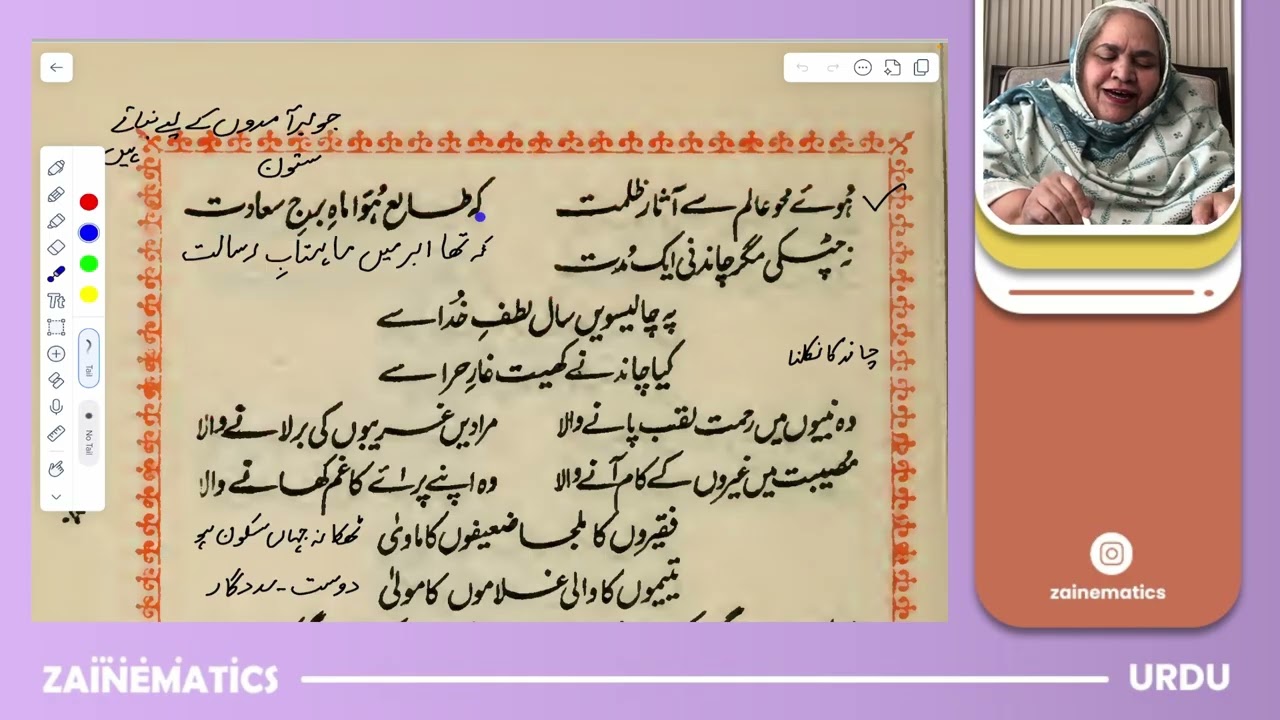 جو برآمدوں کے لیے بناتے
ہیں
ستون
ہُوئے محو عالم سے آثارِ ظلمت کہ طالع ہُوا ماہِ برجِ سعادت
نہ چھٹکی مگر چاندنی ایک مُدت کہ تھا ابر میں ماہتابِ رسالت
یہ چالیسویں سال لطفِ خُدا سے
کیا چاند نے کھیت غارِ حرا سے
چاند کا نکلنا
وہ نبیوں میں رحمت لقب پانے والا مرادیں غریبوں کی بر لانے والا
مُصیبت میں غیروں کے کام آنے والا وہ اپنے پرائے کا غم کھانے والا
فقیروں کا ملجا ضعیفوں کا ماویٰ ٹھکانہ جہاں سکون ہو
یتیموں کا والی غلاموں کا مولیٰ دوست - مددگار
Tt
Tail
No Tail
zainematics
ZAINEMATICS URDU